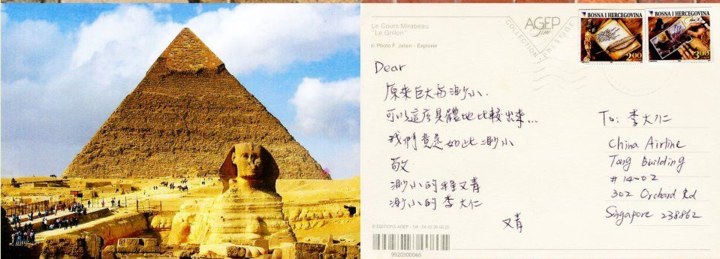 Le Cours Mirabeau
"Le Grillon"
© Photo F. Julien - Explorer
AGEP
BOSNA I HERCEGOVINA
BOSNA I HERCEGOVINA
Dear
原來巨大與渺小,
可以這麼具體地比較出來...
我們竟是如此渺小
敬
渺小的程又青
渺小的李大仁
又青
To: 李大仁
China Airline
Tong Building
#14-02
302 Orchard Rd
Singapore 238862